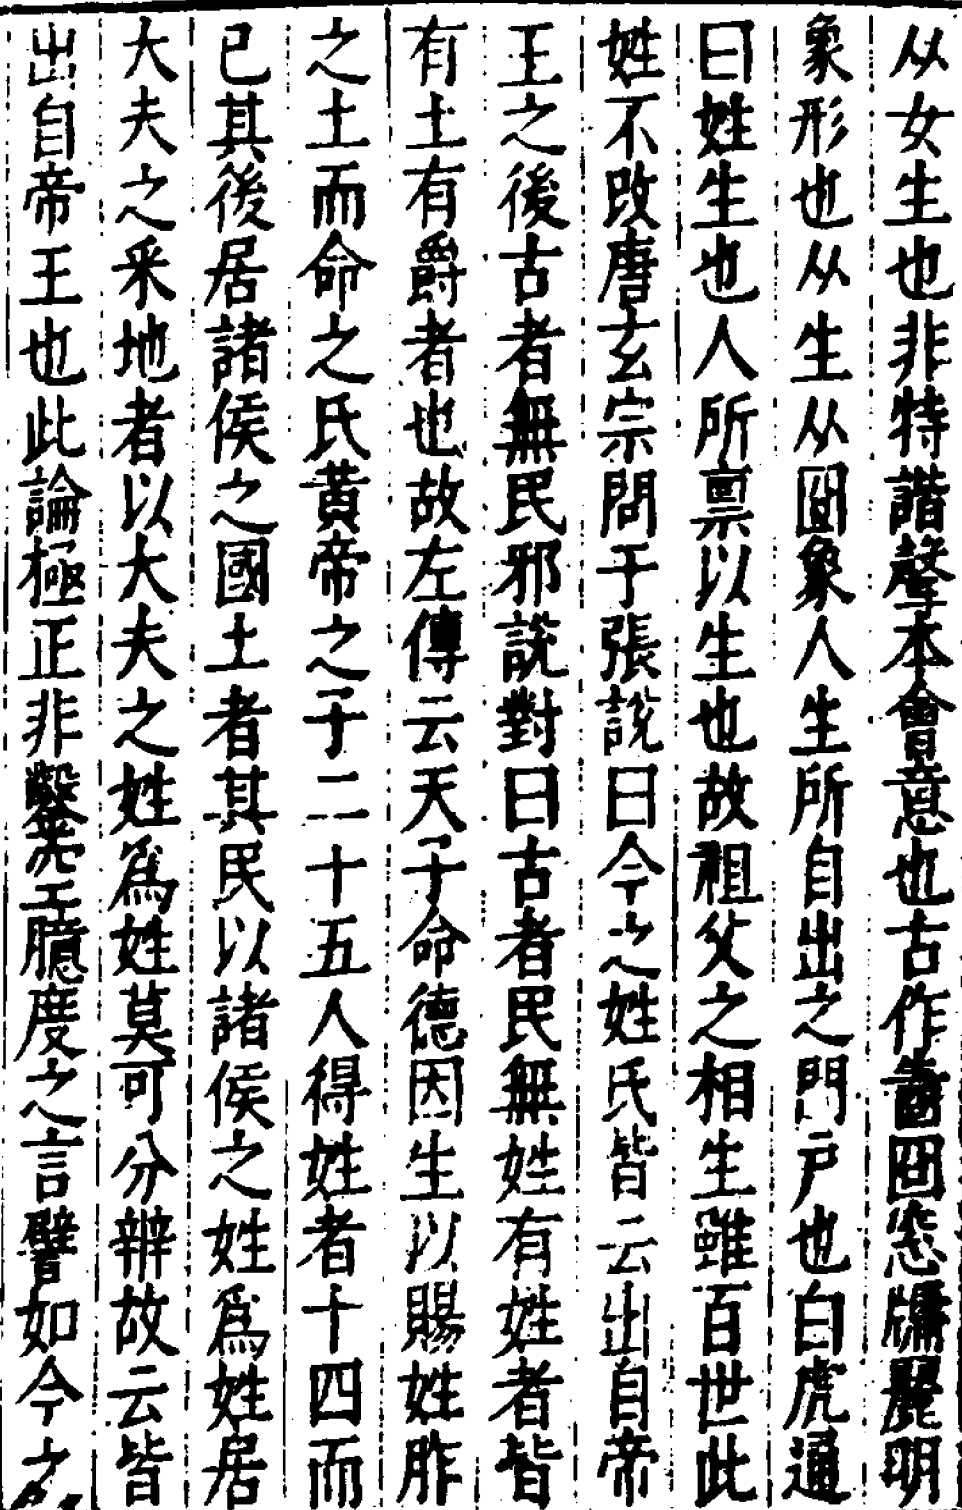 从女生也非特諧聲本會意也古作𤯓囧窓牖麗明
象形也从生从囧象人生所自出之門戶也白虎通
曰姓生也人所禀以生也故祖父之相生雖百世此
姓不改唐玄宗問于張說曰今之姓氏皆云出自帝
王之後古者無民邪說對曰古者民無姓有姓者皆
有土有爵者也故左傳云天子命德因生以賜姓胙
之土而命之氏黃帝之子二十五人得姓者十四而
已其後居諸侯之國土者其民以諸侯之姓爲姓居
大夫之采地者以大夫之姓爲姓莫可分辨故云皆
出自帝王也此論極正非鑿空臆度之言譬如今之